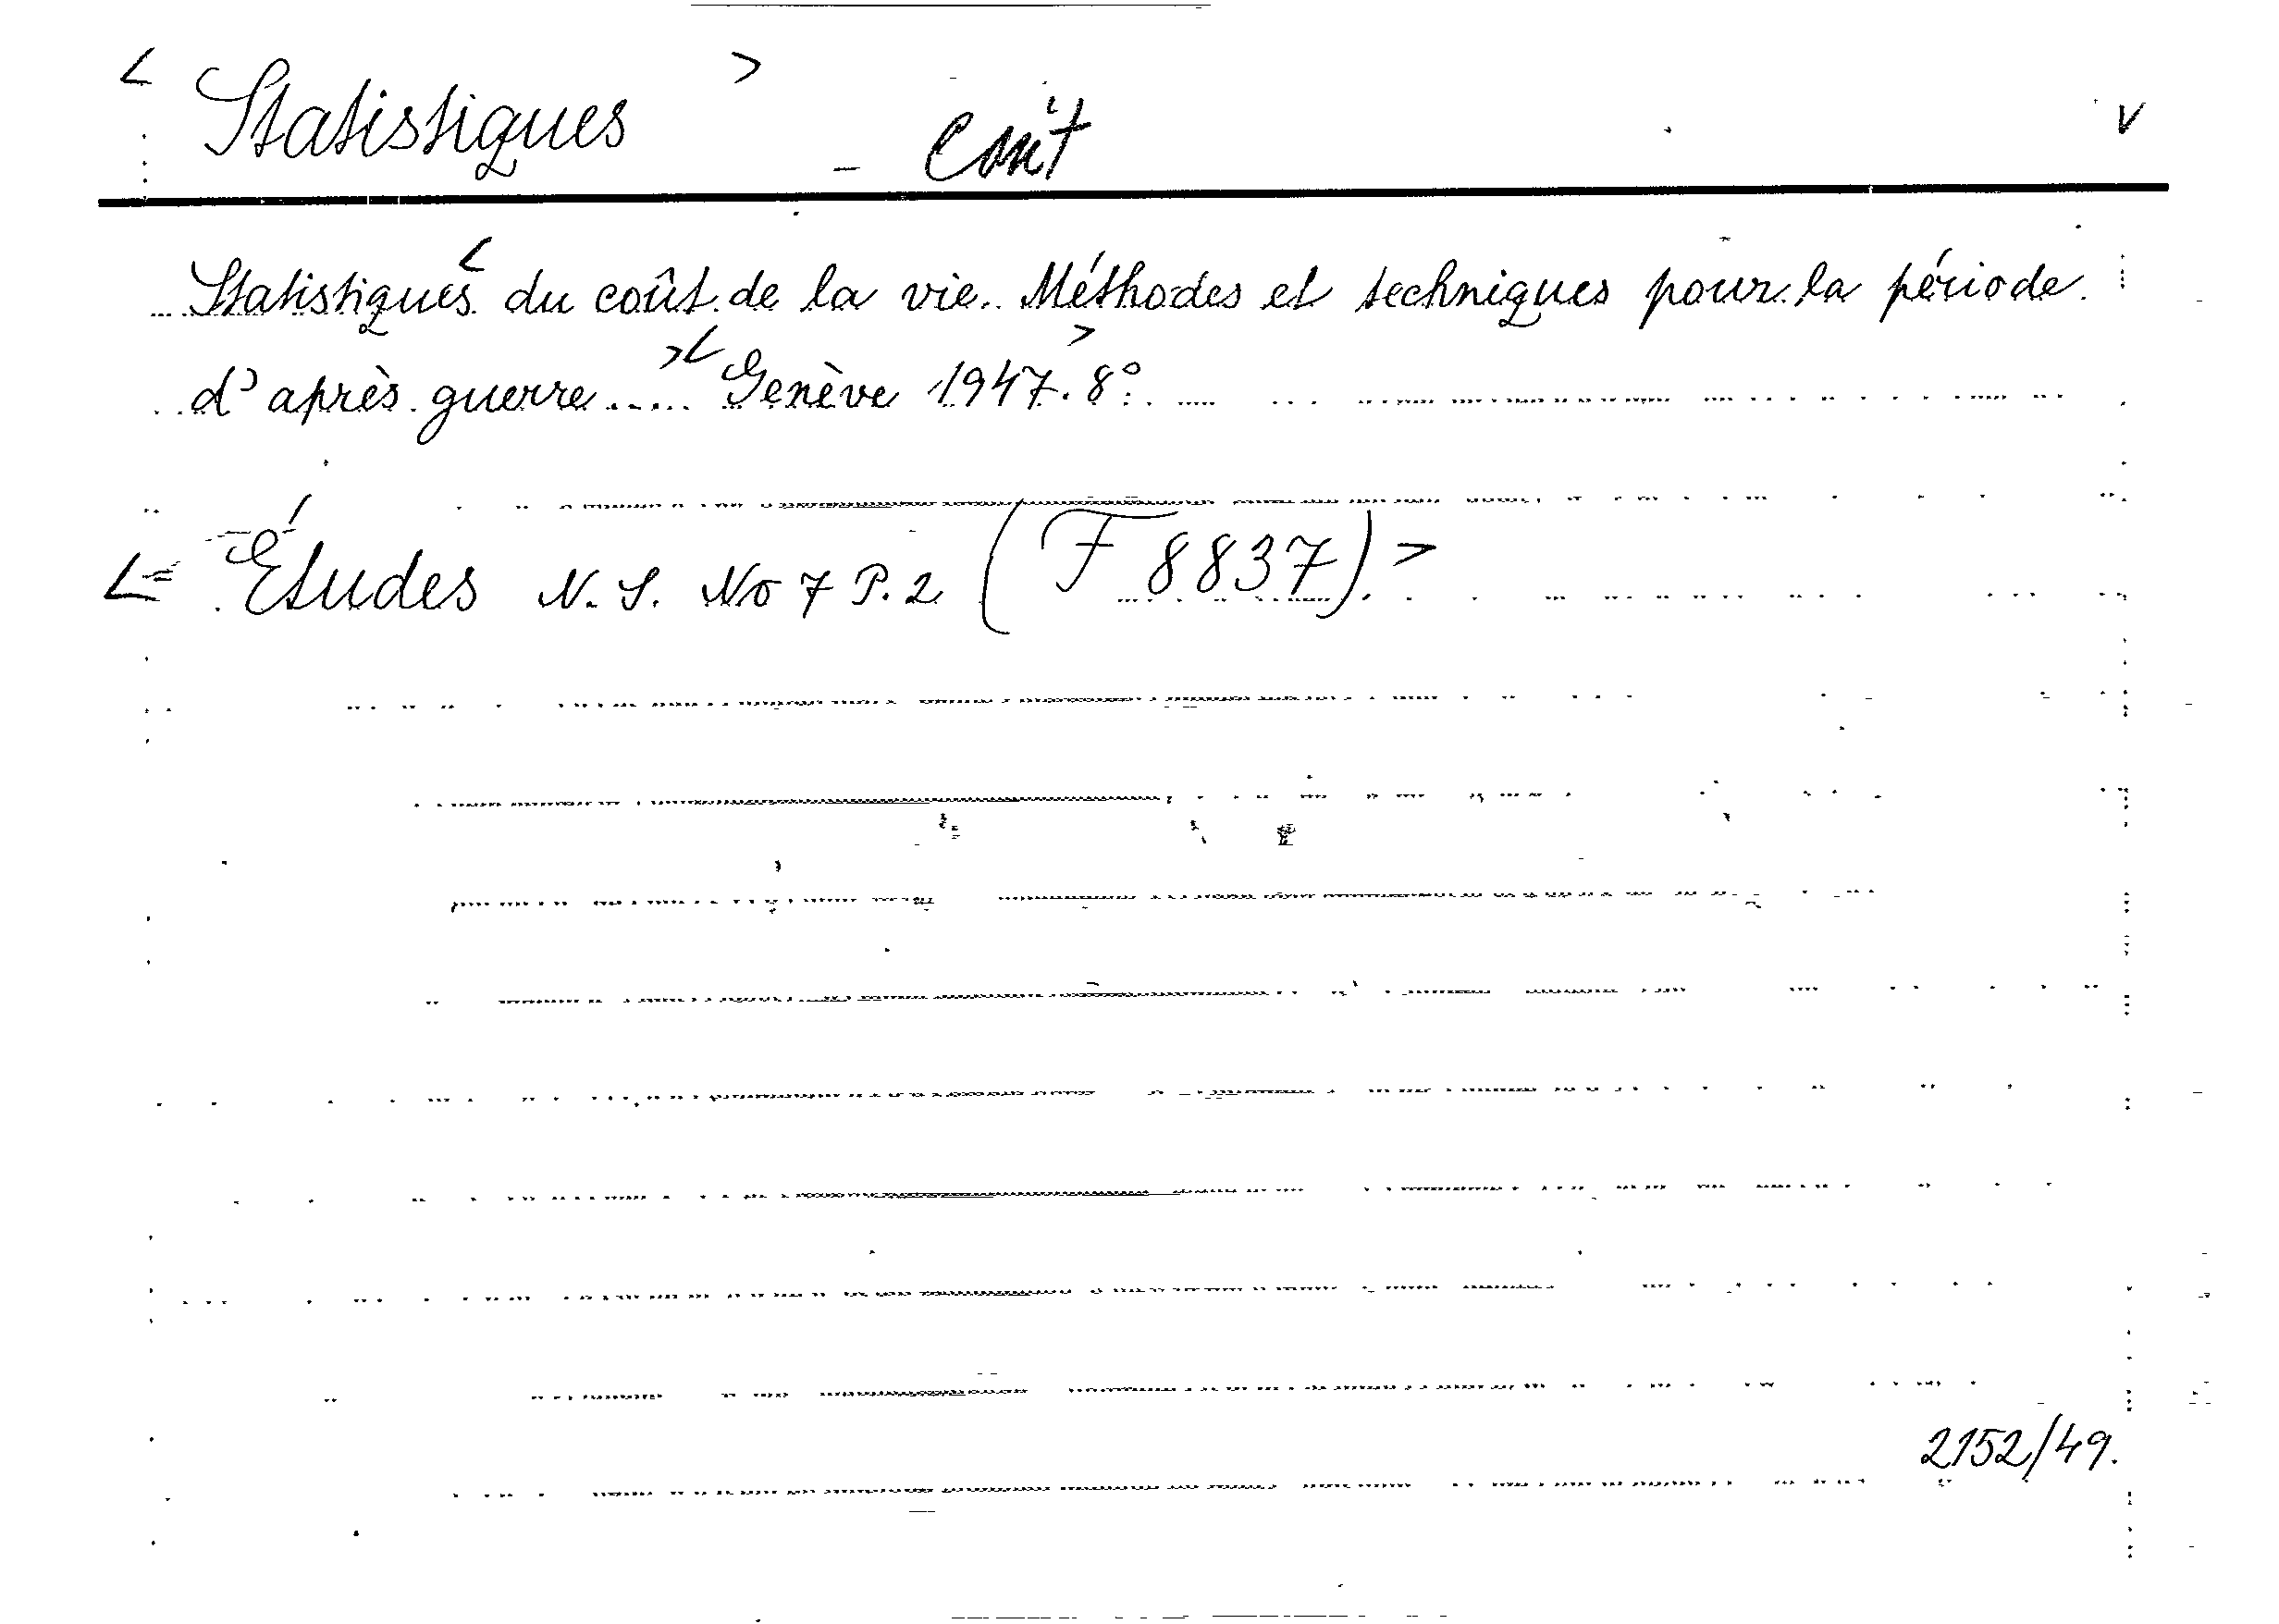 < Statistiques > - coût v
Statistiques < du coût de la vie. Méthodes et techniques pour la période
d'après guerre..... >< Genève 1947. 8°. >
<= Études N. S. No 7 P. 2 (F 8837). >
2152/49.